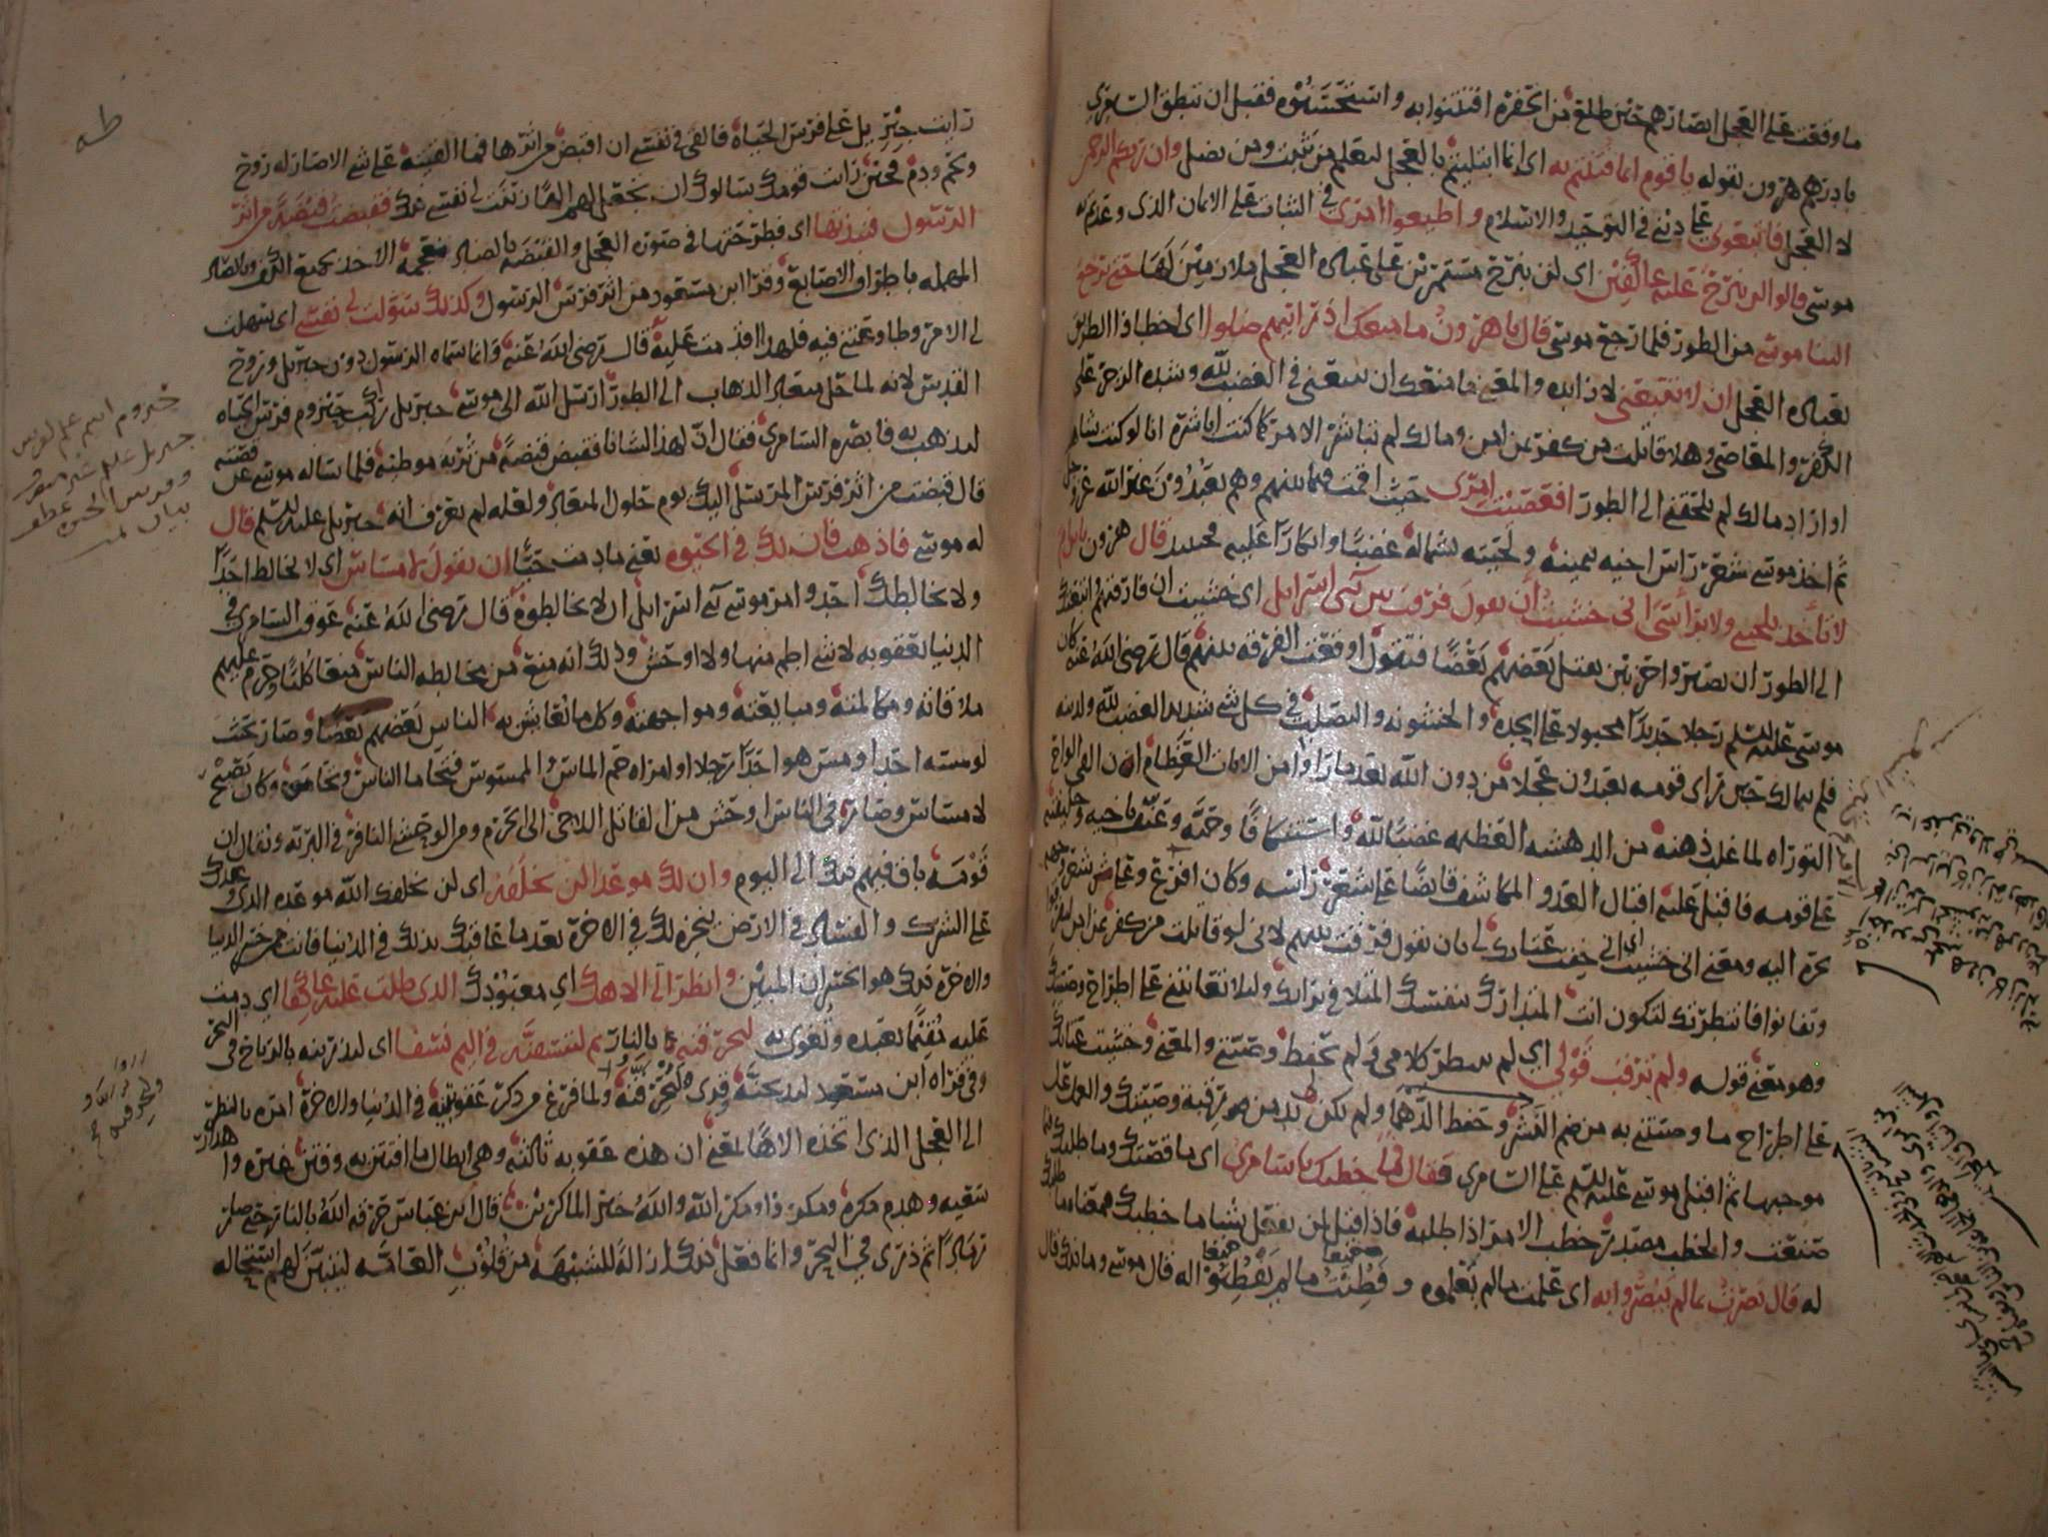 ما وقعت على العجل ابصارهم حين طلع من الحفرة افتتنوا به واستحسنوه فقبل ان ينطق السامري
بادرهم هرون بقوله يا قوم انما فتنتم به اي انما ابتليتم بالعجل ليعلم من يثبت ومن يضل وان ربكم الرحمن
لا العجل فاتبعوني على ديني في التوحيد والاسلام واطيعوا امري في الثبات على الايمان الذي وعدكم
موسى قالوا لن نبرح عليه عاكفين اي لن نبرح مستمرين على عبادة العجل ملازمين لها حتى يرجع
الينا موسى من الطور فلما رجع موسى قال يا هرون ما منعك اذ رايتهم ضلوا اي اخطاوا الطريق
بعبادة العجل ان لا تتبعني لا زايدة والمعنى ما منعك ان تتبعني في الغضب لله وشدة الزجر على
الكفر والمعاصي وهلا قاتلت من كفر بمن امن ومالك لم تباشر الامر كما كنت اباشره انا لو كنت شاهدا
او اراد مالك لم تلحقني الى الطور افعصيت امري حيث اقمت فيما بينهم وهم يعبدون غير الله عز وجل
ثم اخذ موسى شعر راس اخيه بيمينه ولحيته بشماله غضبا وانكارا عليهم فحينئذ قال هرون يا ابن ام
لا تأخذ بلحيتي ولا برأسي اني خشيت ان تقول فرقت بين بني اسرايل اي خشيت ان فارقتهم واتبعتك
الى الطور ان يصيروا حزبين يقتل بعضهم بعضا فتقول اوقعت الفرقة بينهم قال رضي الله عنه كان
موسى عليه السلم رجلا حديدا مجبولا على الحدة والخشونة والتصلب في كل شي شديد الغضب لله ولدينه
فلم يتمالك حين راى قومه يعبدون عجلا من دون الله بعد ما راوا من الايات العظام ان القى الواح
التوراه لما غلب ذهنه من الدهشة العظيمه غضبا لله واستنكافا وحمية وعنف باخيه وخليفته
على قومه فاقبل عليه اقبال العدو المكاشف قابضا على شعر راسه وكان افرع وعلى شعر وجهه
يجره اليه ومعنى اني خشيت اي اني خفت عتابك لي بان تقول فرقت بينهم لاني لو قاتلت من كفر بمن امن لتفرقوا
وتفانوا فانتظرتك لتكون انت المتدارك بنفسك المتلافي برايك ولئلا تعاتبني على اطراح وصيتك
وهو معنى قوله ولم ترقب قولي اي لم تنتظر كلامي و لم تحفظ وصيتي والمعنى وخشيت عتابك
على اطراح ما وصيتني به من ضم النشر وحفظ الدهما ولم يكن لي بد من رقبة وصيتك والعمل على
موجبها ثم اقبل موسى عليه السلم على السامري فقال فما خطبك يا سامري اي ما قصتك وما طلبك فيما
صنعت والخطب مصدر خطب الامر اذا طلبه فاذا قيل لمن يفعل شيا ما خطبك فمعناه ما طلبك
له قال بصرت بما لم يبصروا به اي علمت ما لم تعلموه وفطنت ما لم تفطنوا له قال موسى وما ذلك قال
طه
رايت جبريل على فرس الحياة فالقي في نفسي ان اقبض من اثرها فما القيته على شي الا صار له روح
ولحم ودم فحين رايت قومك سالوك ان تجعل لهم الها زينت لي نفسي ذلك فقبضت قبضة من اثر
الرسول فنبذتها اي فطرحتها في صورة العجل والقبضه بالضاد معجمة الاخذ بجميع الكف وبالصاد
المهمله باطراف الاصابع وقرا ابن مسعود من اثر فرس الرسول وكذلك سولت لي نفسي اي سهلت
لي الامر وطاوعتني فيه فلهذا اقدمت عليه قال رضي الله عنه وانما سماه الرسول دون جبريل وروح
القدس لانه لما حل ميعاد الذهاب الى الطور ارسل الله الى موسى جبريل راكب حيزوم فرس الحياة
ليذهب به فابصره السامري فقال ان لهذا لشانا فقبض قبضة من تربة موطئه فلما ساله موسى عن قصته
قال قبضت من اثر فرس المرسل اليك يوم حلول الميعاد ولعله لم يعرف انه جبريل عليه السلم قال
له موسى فاذهب فان لك في الحيوة يعني ما دمت حيا ان تقول لا مساس اي لا تخالط احدا
ولا يخالطك احد وامر موسى بني اسرايل ان لا يخالطوه قال رضي الله عنه عوقب السامري في
الدنيا بعقوبه لا شي اطم منها ولا اوحش وذلك انه منع من مخالطه الناس منعا كليا وحرم عليهم
ملاقاته ومكالمته ومبايعته ومواجهته وكل ما تعايش به الناس بعضهم بعضا وصار بحيث
لو مسه احد او مس هو احدا رجلا او امراه حم الماس والممسوس فتحاما الناس وتحاموه وكان يصيح
لا مساس وصار في الناس اوحش من القاتل اللاجي الى الحرم ومن الوحشي النافر في البرية ويقال ان
قومه باق فيهم ذلك الى اليوم وان لك موعدا لن تخلفه اي لن يخلفك الله موعده الذي وعدك
على الشرك والفساد في الارض ينجزه لك في الاخرة بعد ما عاقبك بذلك في الدنيا فانت ممن خسر الدنيا
والاخرة ذلك هو الخسران المبين وانظر الى الاهك اي معبودك الذي ظلت عليه عاكفا اي دمت
عليه مقيما تعبده وتغوي به لنحرقنه بالنار ثم لننسفنه في اليم نسفا اي لنذرينه بالرياح في البحر
وفي قراه ابن مسعود لنذبحنه وقرى لنحرقنه ولما فرغ من ذكر عقوبته في الدنيا والاخرة امره بالنظر
الى العجل الذي اتخذه الاها لمعنى ان هذه عقوبه ثالثه وهي ابطال ما افتتن به وفتن غيره واهدار
سعيه وهدم مكره ومكروا ومكر الله والله خير الماكرين قال ابن عباس حرقه الله بالنار حتى صار
رمادا ثم ذري في البحر وانما فعل ذلك ازالة للشبهة من قلوب العامه ليتبين لهم استحاله
حيزوم اسم علم لفرس
جبريل علم غير منصرف
وفرس الحيوة عطف
بيان له